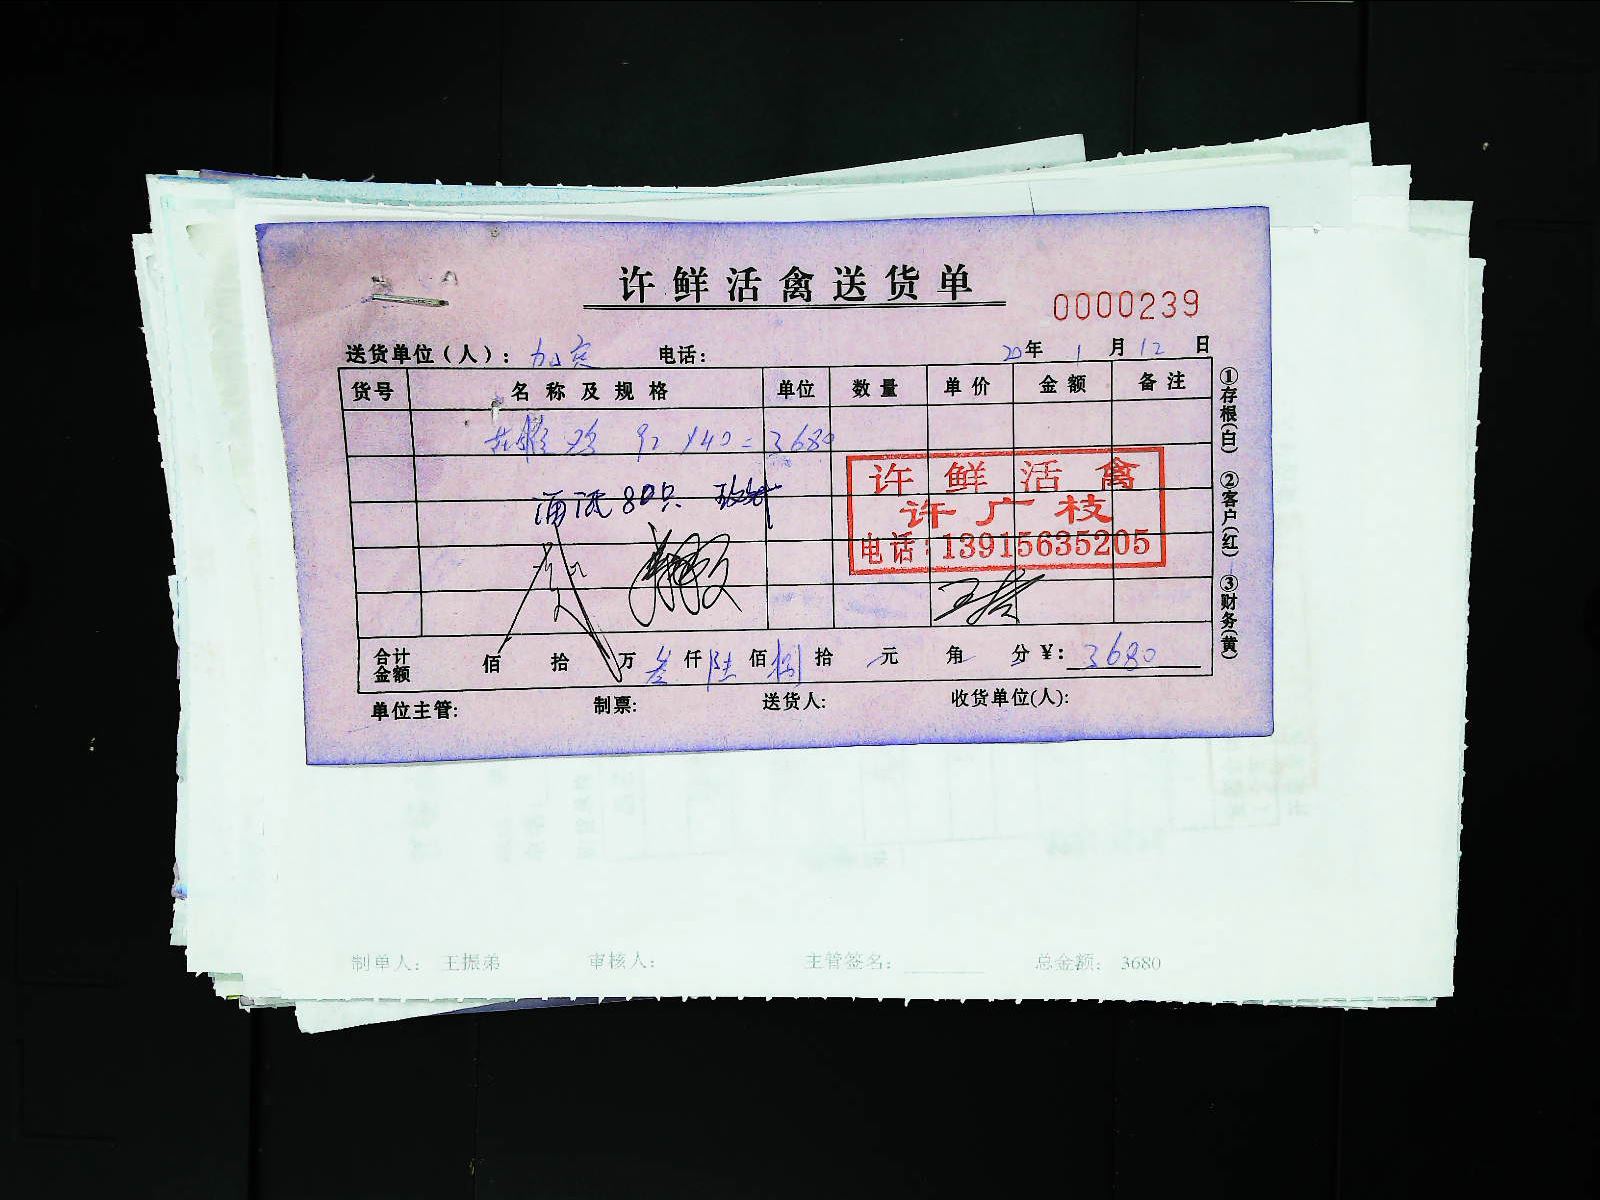 许鲜活禽送货单
0000239
送货单位（人）： 电话： 20年 1 月 12 日
货号 名称及规格 单位 数量 单价 金额 备注
鸡 92 x40=3680
80只
许鲜活禽
许广枝
电话：13915635205
合计金额 佰 拾 万 叁仟 陆佰 捌拾 元 角 分 ¥：3680
单位主管： 制票： 送货人： 收货单位(人)：
①存根(白) ②客户(红) ③财务(黄)
制单人： 王振弟 审核人： 主管签名： 总金额： 3680